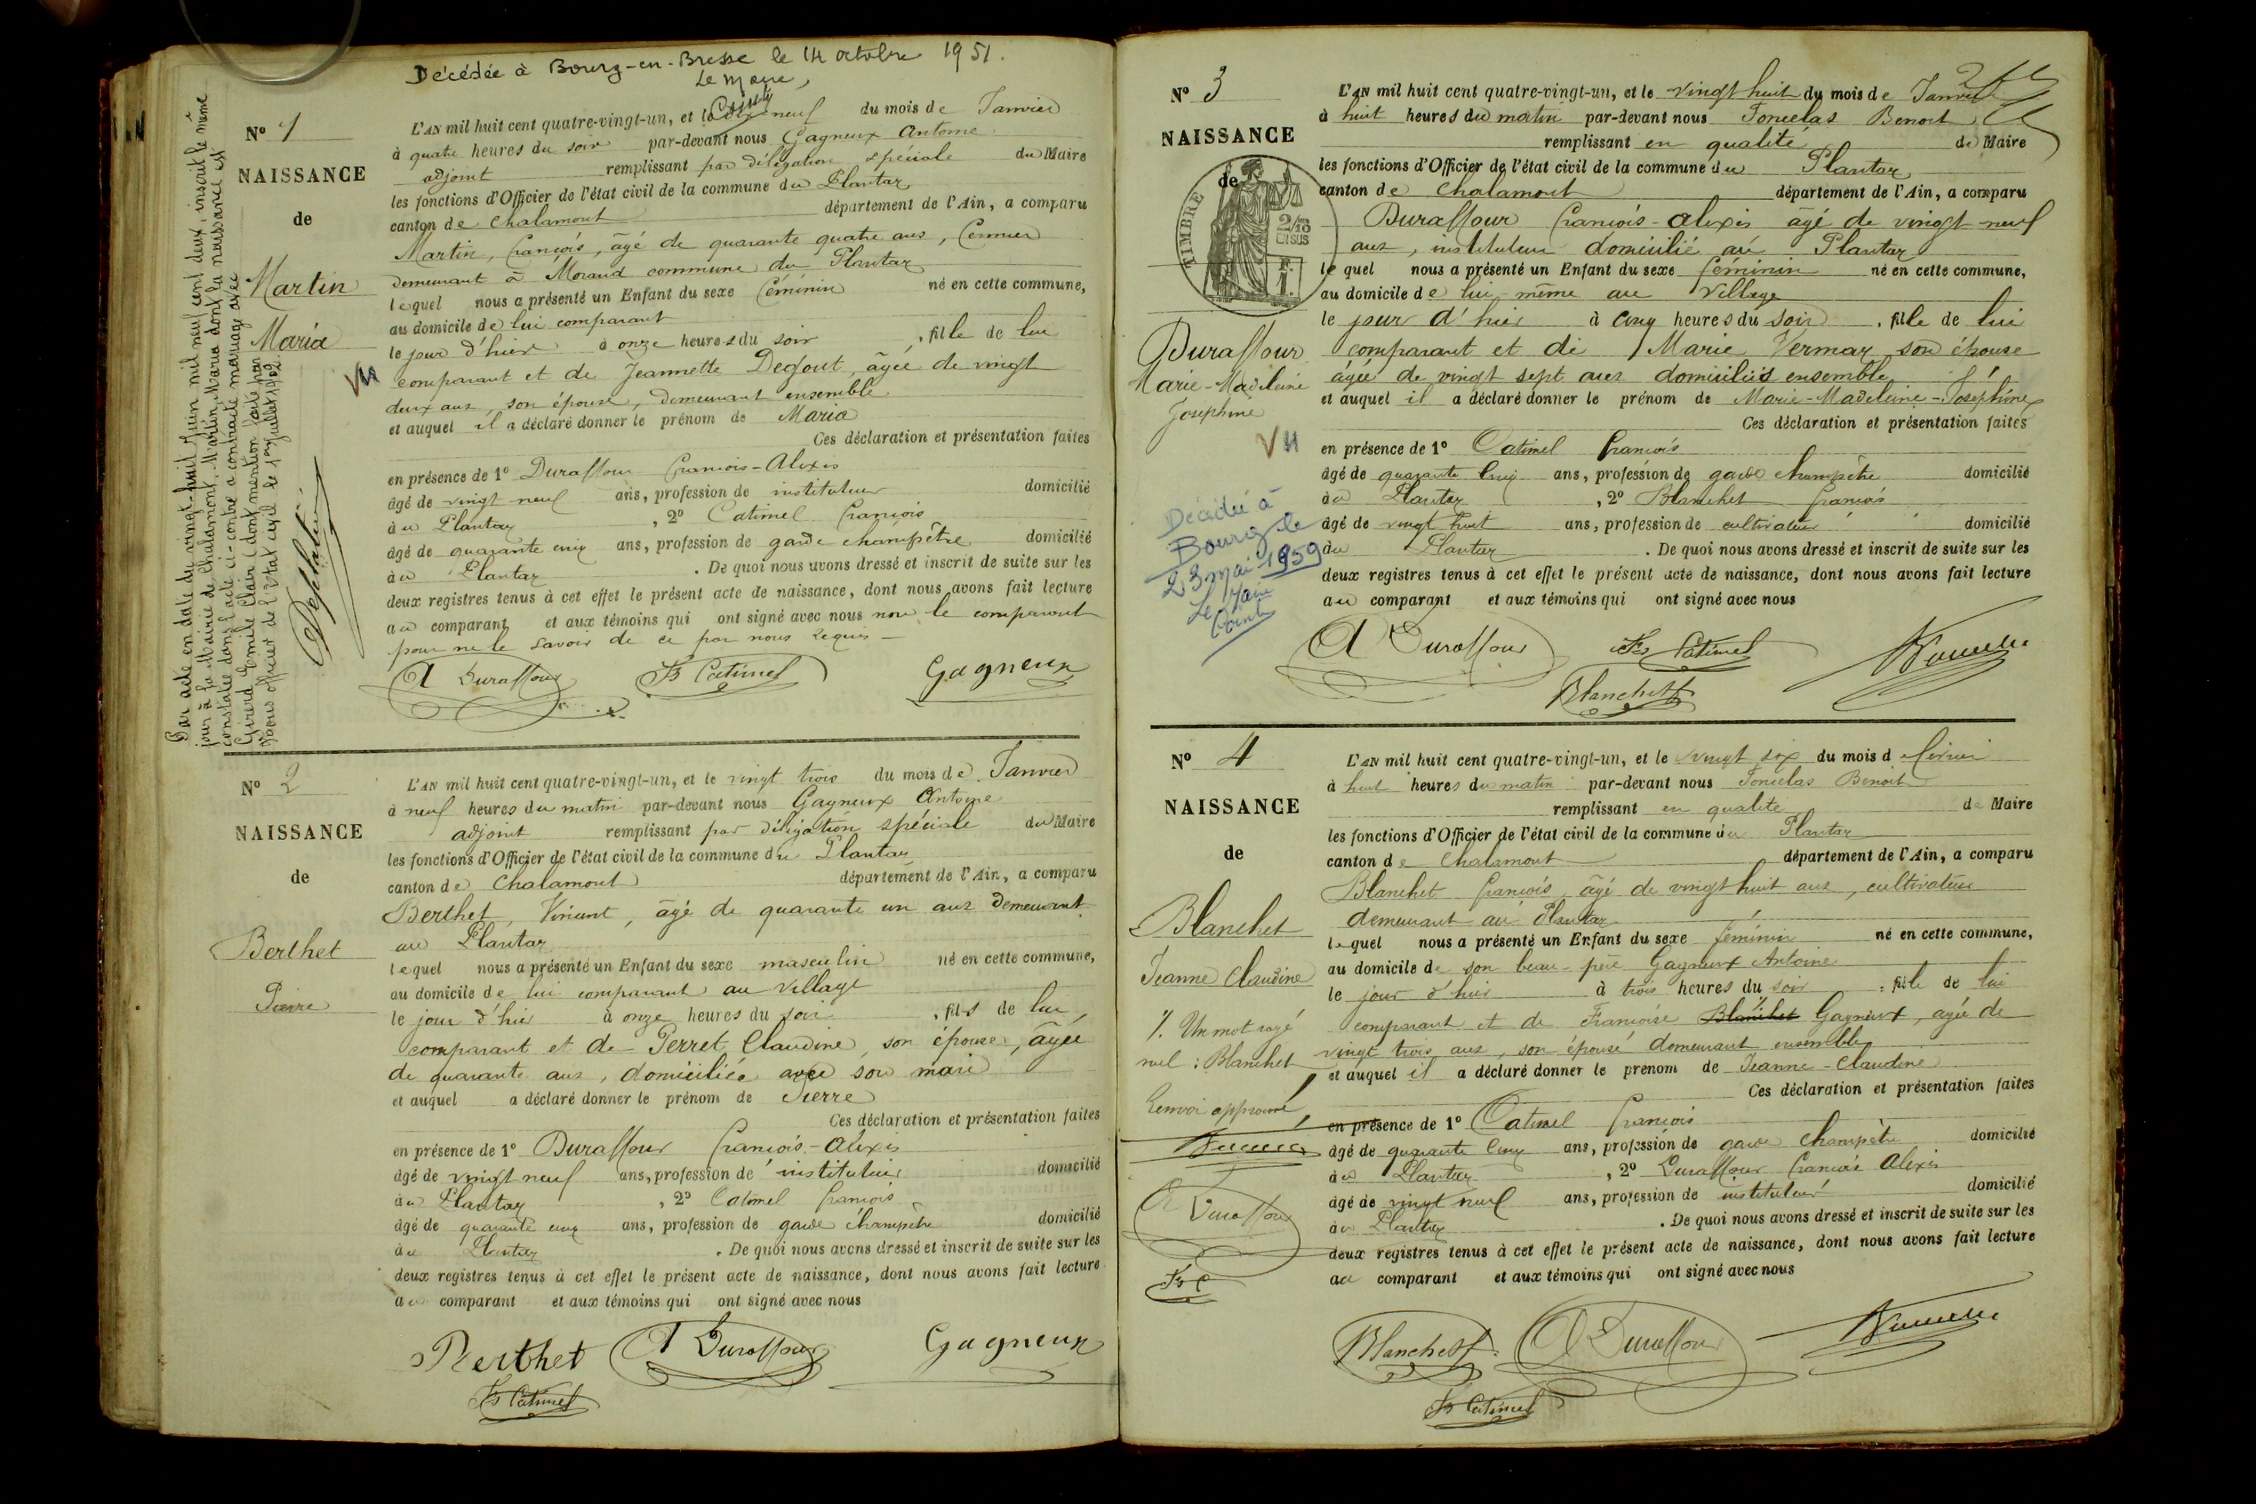 Décédée à Bourg-en-Bresse le 14 octobre 1951.
Le Maire,
Par acte en date du vingt-huit Juin mil neuf cent deux, inscrit le même
jour à la Mairie de Chalamont, Martin, Maria dont la naissance est
constatée dans l'acte ci-contre a contracté mariage avec
Girerd Emile Clair (dont mention faite par
nous officier de l'Etat civil le 1er Juillet 1902.
N° 1
NAISSANCE
de
Martin
Maria
Vu
L'AN mil huit cent quatre-vingt-un, et le neuf du mois de Janvier
à quatre heures du soir par-devant nous Gagneux Antoine
adjoint remplissant par délégation spéciale du Maire
les fonctions d'Officier de l'état civil de la commune du Plantay
canton de Chalamont département de l'Ain, a comparu
Martin, François, âgé de quarante quatre ans, fermier
demeurant à Morand commune du Plantay
lequel nous a présenté un Enfant du sexe féminin né en cette commune,
au domicile de lui comparant
le jour d'hier à onze heures du soir, fille de lui
comparant et de Jeannette Degout, âgée de vingt
deux ans, son épouse, demeurant ensemble
et auquel il a déclaré donner le prénom de Maria
Ces déclaration et présentation faites
en présence de 1° Duraffour François-Alexis
âgé de vingt neuf ans, profession de instituteur domicilié
au Plantay, 2° Catimel François
âgé de quarante cinq ans, profession de garde champêtre domicilié
au Plantay. De quoi nous avons dressé et inscrit de suite sur les
deux registres tenus à cet effet le présent acte de naissance, dont nous avons fait lecture
au comparant et aux témoins qui ont signé avec nous non le comparant
pour ne le savoir de ce par nous requis
A Duraffour Fs Catimel Gagneux
N° 2
NAISSANCE
de
Berthet
Pierre
L'AN mil huit cent quatre-vingt-un, et le vingt trois du mois de Janvier
à neuf heures du matin par-devant nous Gagneux Antoine
adjoint remplissant par délégation spéciale du Maire
les fonctions d'Officier de l'état civil de la commune du Plantay
canton de Chalamont département de l'Ain, a comparu
Berthet, Vincent, âgé de quarante un ans demeurant
au Plantay
lequel nous a présenté un Enfant du sexe masculin né en cette commune,
au domicile de lui comparant au village
le jour d'hier à onze heures du soir, fils de lui,
comparant et de Perret Claudine, son épouse, âgée
de quarante ans, domiciliée avec son mari
et auquel a déclaré donner le prénom de Pierre
Ces déclaration et présentation faites
en présence de 1° Duraffour François-Alexis
âgé de vingt neuf ans, profession de instituteur domicilié
au Plantay, 2° Catimel François
âgé de quarante cinq ans, profession de garde champêtre domicilié
au Plantay. De quoi nous avons dressé et inscrit de suite sur les
deux registres tenus à cet effet le présent acte de naissance, dont nous avons fait lecture
au comparant et aux témoins qui ont signé avec nous
Berthet A Duraffour Gagneux
Fs Catimel
N° 3
NAISSANCE
de
TIMBRE
2/10
EN SUS
Duraffour
Marie-Madeleine
Joséphine
Vu
Décédée à
Bourg le
23 mai 1959
Le Maire
L'AN mil huit cent quatre-vingt-un, et le vingt huit du mois de Janvier
à huit heures du matin par-devant nous Benoit
remplissant en qualité de Maire
les fonctions d'Officier de l'état civil de la commune du Plantay
canton de Chalamont département de l'Ain, a comparu
Duraffour François-Alexis âgé de vingt-neuf
ans, instituteur domicilié au Plantay
lequel nous a présenté un Enfant du sexe féminin né en cette commune,
au domicile de lui-même au village
le jour d'hier à cinq heures du soir, fille de lui
comparant et de Marie Vermay son épouse
âgée de vingt sept ans domiciliés ensemble
et auquel il a déclaré donner le prénom de Marie-Madeleine-Joséphine
Ces déclaration et présentation faites
en présence de 1° Catimel François
âgé de quarante cinq ans, profession de garde champêtre domicilié
au Plantay, 2° Blanchet François
âgé de vingt huit ans, profession de cultivateur domicilié
au Plantay. De quoi nous avons dressé et inscrit de suite sur les
deux registres tenus à cet effet le présent acte de naissance, dont nous avons fait lecture
au comparant et aux témoins qui ont signé avec nous
A Duraffour Fs Catimel
Blanchet
N° 4
NAISSANCE
de
Blanchet
Jeanne Claudine
/. Un mot rayé
nul : Blanchet
Renvoi approuvé
A Duraffour
Fs C
L'AN mil huit cent quatre-vingt-un, et le vingt six du mois d février
à huit heures du matin par-devant nous Benoit
remplissant en qualité de Maire
les fonctions d'Officier de l'état civil de la commune du Plantay
canton de Chalamont département de l'Ain, a comparu
Blanchet François, âgé de vingt huit ans, cultivateur
demeurant au Plantay
lequel nous a présenté un Enfant du sexe féminin né en cette commune,
au domicile de son beau-père Gagneux Antoine
le jour d'hier à trois heures du soir, fille de lui
comparant et de Françoise Blanchet Gagneux, âgée de
vingt trois ans, son épouse demeurant ensemble
et auquel il a déclaré donner le prénom de Jeanne-Claudine
Ces déclaration et présentation faites
en présence de 1° Catimel François
âgé de quarante cinq ans, profession de garde champêtre domicilié
au Plantay, 2° Duraffour François Alexis
âgé de vingt neuf ans, profession de instituteur domicilié
au Plantay. De quoi nous avons dressé et inscrit de suite sur les
deux registres tenus à cet effet le présent acte de naissance, dont nous avons fait lecture
au comparant et aux témoins qui ont signé avec nous
Blanchet A Duraffour
Fs Catimel